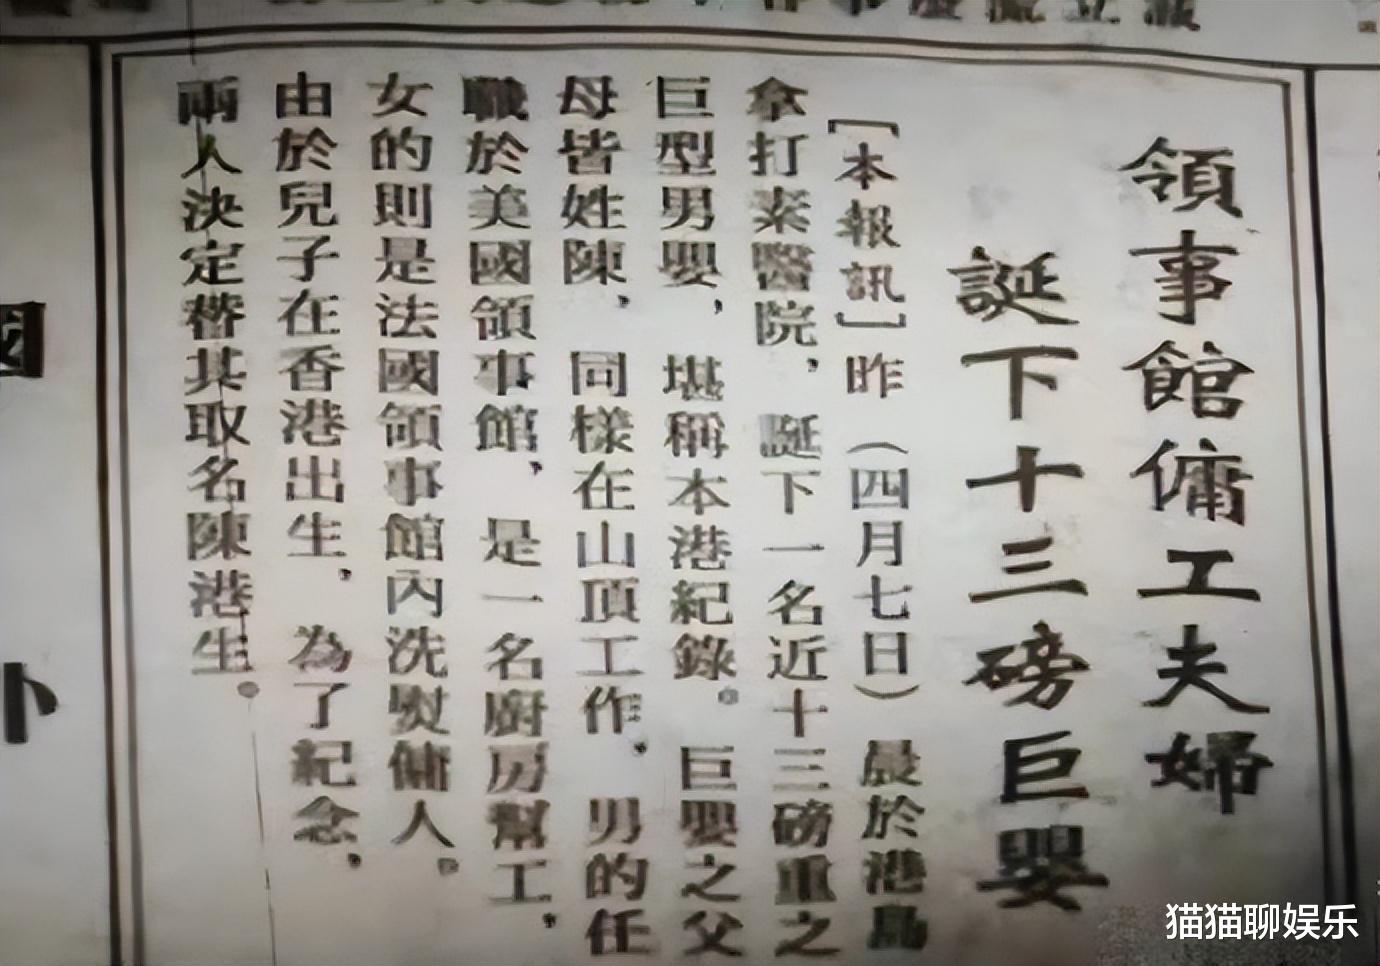 領事館傭工夫婦
誕下十三磅巨嬰
［本報訊］昨（四月七日）晨於港島
拿打素醫院，誕下一名近十三磅重之
巨型男嬰，堪稱本港紀錄。巨嬰之父
母皆姓陳，同樣在山頂工作，男的任
職於美國領事館，是一名廚房幫工，
女的則是法國領事館內洗熨傭人。
由於兒子在香港出生，為了紀念，
兩人決定替其取名陳港生。
卜
猫猫聊娱乐